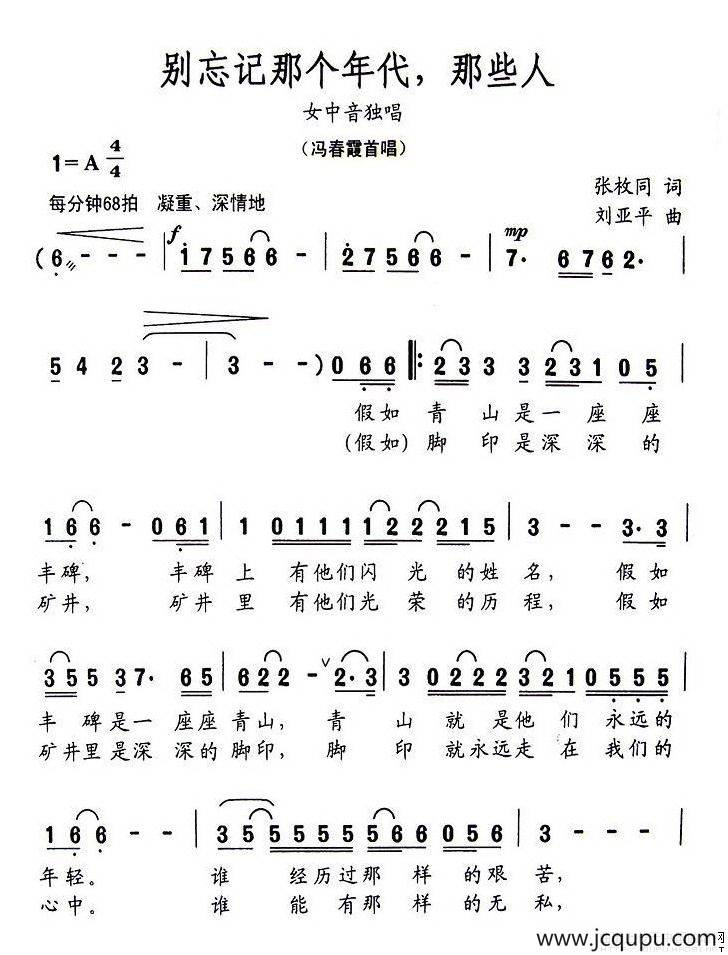 别忘记那个年代，那些人
女中音独唱
（冯春霞首唱）
1=A 4/4
张枚同 词
每分钟68拍 凝重、深情地
刘亚平 曲
f mp
( 6 - - - | 1 7 5 6 6 - | 2 7 5 6 6 - | 7· 6 7 6 2· |
5 4 2 3 - | 3 - - ) 0 6 6 |: 2 3 3 3 2 3 1 0 5 |
假如 青 山 是 一 座 座
(假如) 脚 印 是 深 深 的
1 6 6 - 0 6 1 | 1 0 1 1 1 1 2 2 2 1 5 | 3 - - 3·3 |
丰碑， 丰碑 上 有他们闪 光 的姓 名， 假如
矿井， 矿井 里 有他们光 荣 的历 程， 假如
3 5 5 3 7· 6 5 | 6 2 2 - 2·3 | 3 0 2 2 2 3 2 1 0 5 5 5 |
丰 碑是一 座座青山， 青 山 就 是他 们 永远的
矿井里是深 深的脚印， 脚 印 就永远走 在 我们的
1 6 6 - - | 3 5 5 5 5 5 5 6 6 0 5 6 | 3 - - -
年轻。 谁 经历过那 样 的艰 苦，
心中。 谁 能 有那 样 的无 私，
www.jcqupu.com